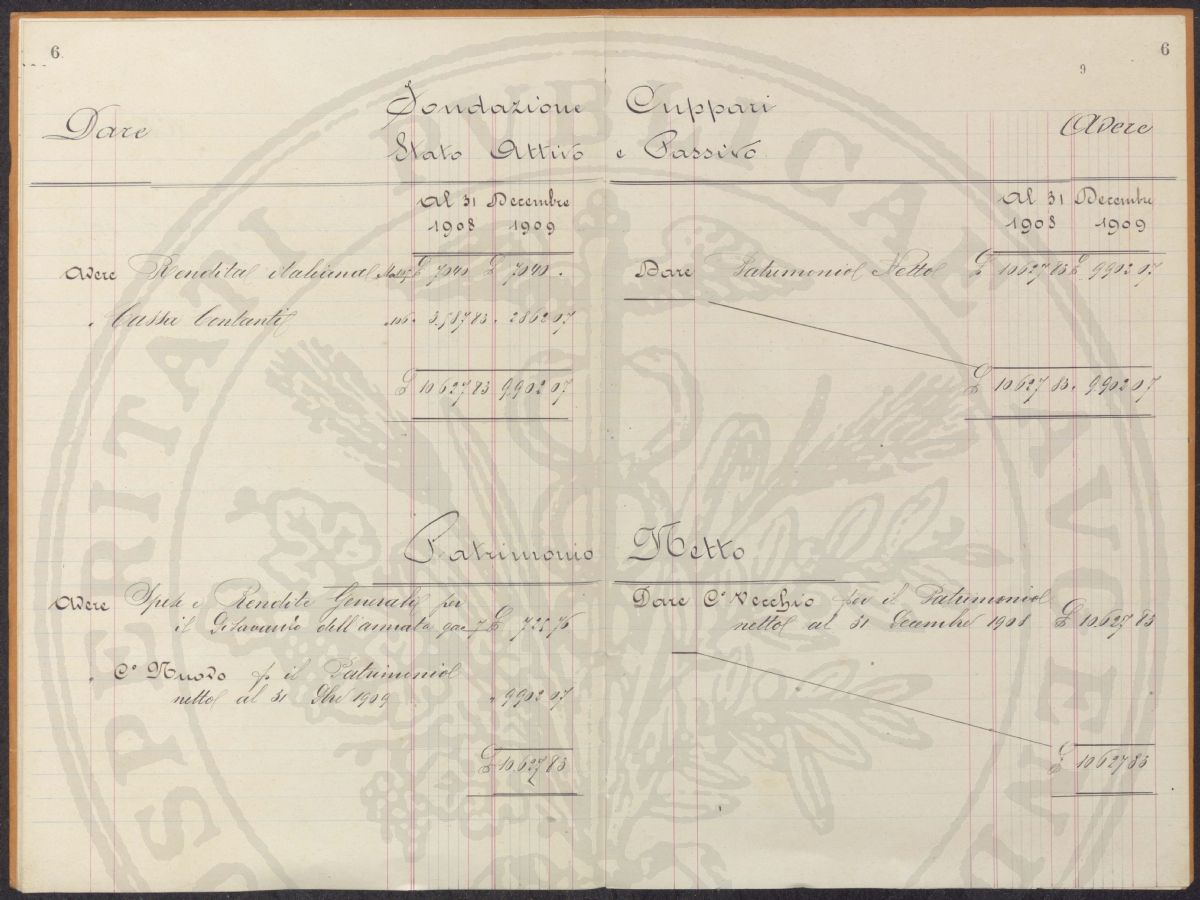 6
6
9
Fondazione Cuppari
Dare
Avere
Stato Attivo e Passivo
Al 31 Decembre
Al 31 Decembre
1908 1909
1908 1909
Avere Rendita italiana £ 7040 £ 7040 .
Dare Patrimonio Netto £ 10627 83 £ 9902 07
" Cassa Contanti 106 . 3587 83 . 2862 07
£ 10627 83 9902 07
£ 10627 83 . 9902 07
Patrimonio Netto
Avere Spese e Rendite Generali per
il Disavanzo dell'annata £ 725 76
Dare Co Vecchio per il Patrimonio
netto al 31 Decembre 1908 £ 10627 83
" Co Nuovo p il Patrimonio
netto al 31 Dbre 1909 " 9902 07
£ 10627 83
£ 10627 83
PROSPERITATI PVBLICAE AVGENDAE